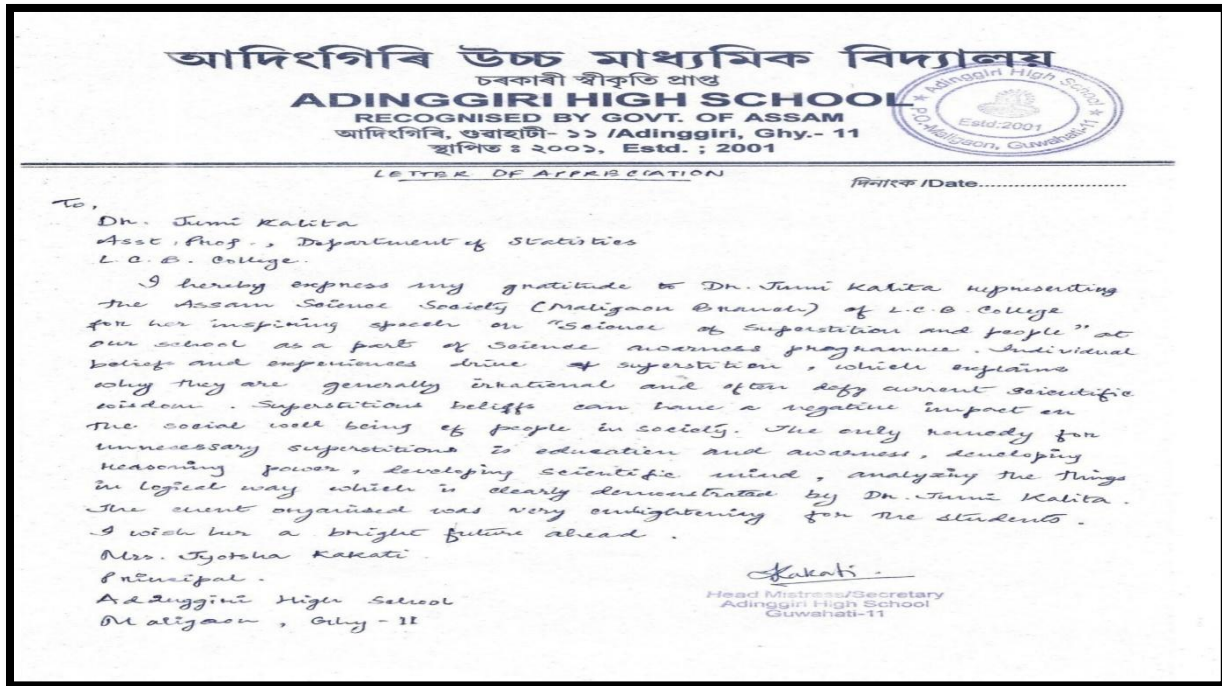 আদিংগিৰি উচ্চ মাধ্যমিক বিদ্যালয়
চৰকাৰী স্বীকৃতি প্ৰাপ্ত
ADINGGIRI HIGH SCHOOL
RECOGNISED BY GOVT. OF ASSAM
আদিংগিৰি, গুৱাহাটী- ১১ /Adinggiri, Ghy.- 11
স্থাপিত ঃ ২০০১, Estd. ; 2001
Adinggiri High School
Estd:2001
P.O-Maligaon, Guwahati-11
LETTER OF APPRECIATION
দিনাংক /Date...........................
To,
Dr. Jumi Kalita
Asst. Prof., Department of Statistics
L.C.B. College.
I hereby express my gratitude to Dr. Jumi Kalita representing
the Assam Science Society (Maligaon Branch) of L.C.B. College
for her inspiring speech on "Science of Superstition and people" at
our school as a part of Science awarness programme. Individual
beliefs and experiences drive of superstition, which explains
why they are generally irrational and often defy current scientific
wisdom. Superstitious beliefs can have a negative impact on
the social well being of people in society. The only remedy for
unnecessary superstitions is education and awarness, developing
reasoning power, developing scientific mind, analyzing the things
in logical way which is clearly demonstrated by Dr. Jumi Kalita.
The event organised was very enlightening for the students.
I wish her a bright future ahead.
Mrs. Jyotsha Kakati
Principal.
Adinggiri High School
Maligaon, Ghy-11
Kakati
Head Mistress/Secretary
Adinggiri High School
Guwahati-11